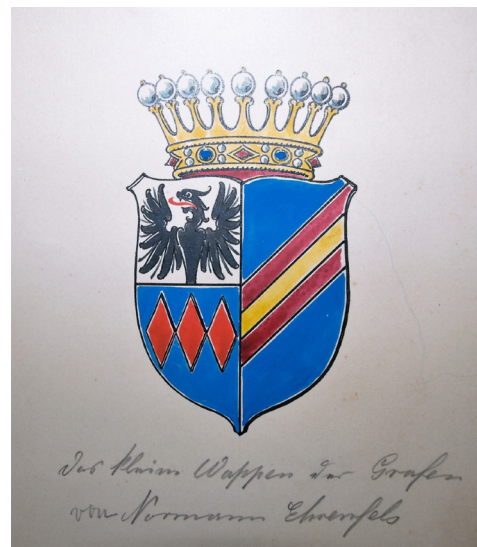 Das kleine Wappen der Grafen
von Normann Ehrenfels.